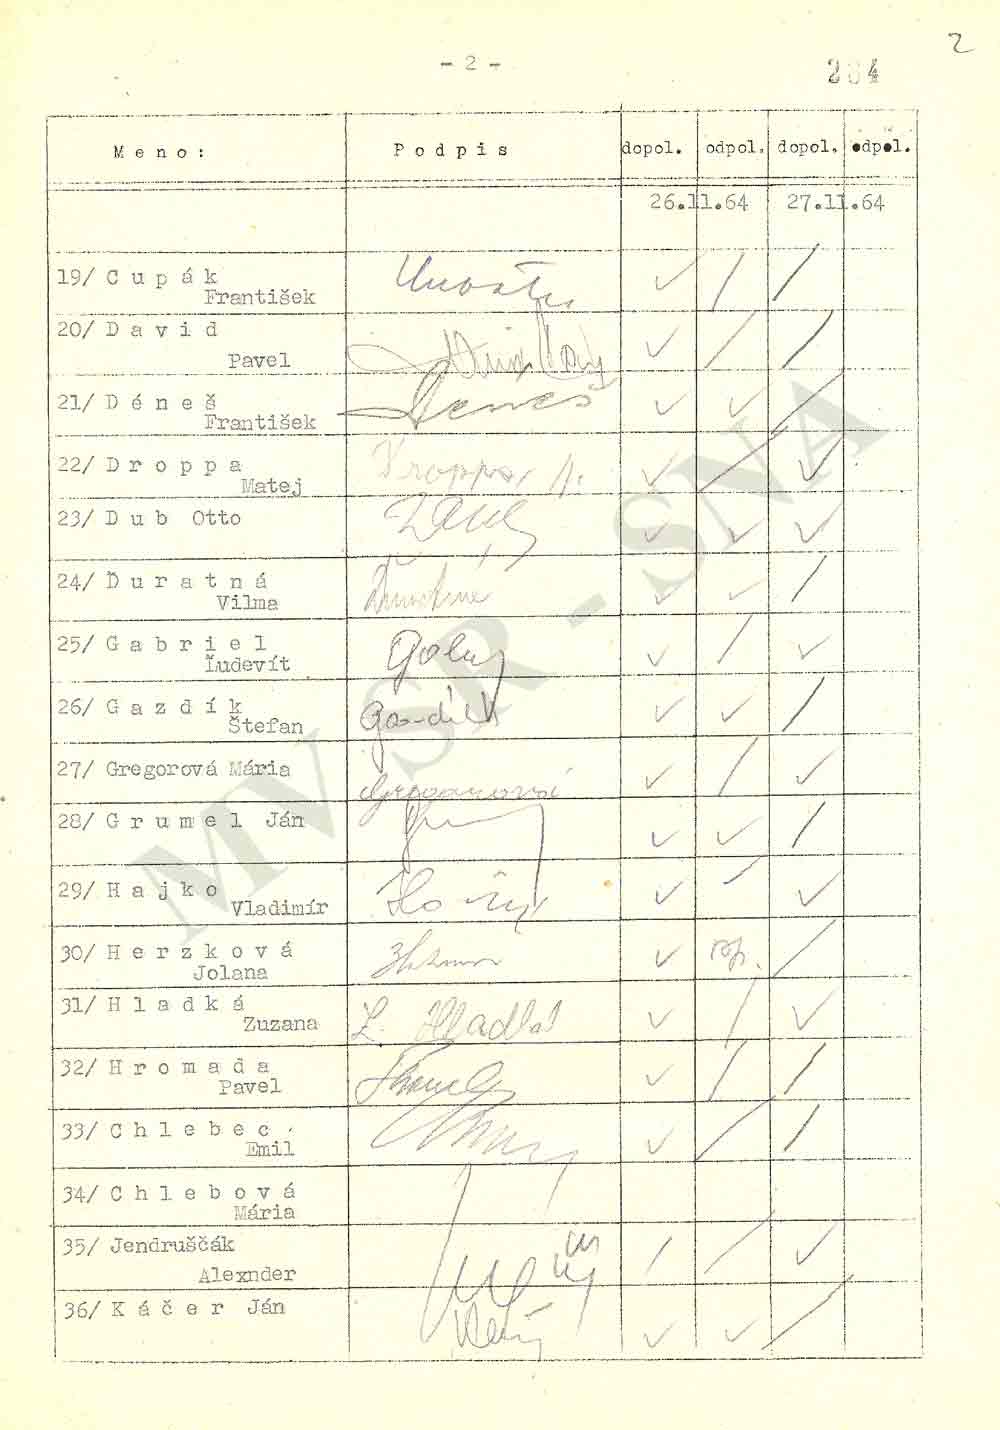 2
- 2 -
264
Meno: Podpis dopol. odpol. dopol. odpol.
26.11.64 27.11.64
19/ Cupák
František
20/ David
Pavel
21/ Déneš Deneš
František
22/ Droppa Droppa M.
Matej
23/ Dub Otto
24/ Ďuratná
Vilma
25/ Gabriel
Ľudevít
26/ Gazdík Gazdík
Štefan
27/ Gregorová Mária Gregorová
28/ Grumel Ján
29/ Hajko
Vladimír
30/ Herzková
Jolana
31/ Hladká
Zuzana Z. Hladká
32/ Hromada
Pavel
33/ Chlebec
Emil
34/ Chlebová
Mária
35/ Jendruščák
Alexnder
36/ Káčer Ján
MVSR - SNA